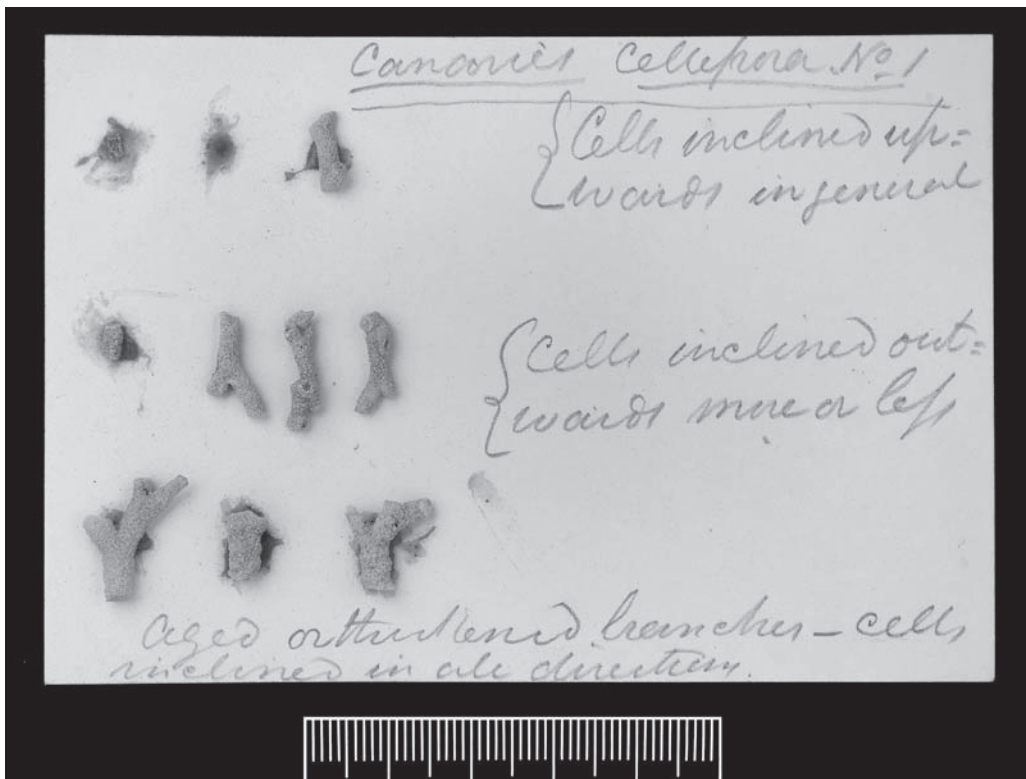 Canaries Cellepora. No 1
Cells inclined up=
wards in general
Cells inclined out=
wards more or less
Aged or thickened branches – cells
inclined in all directions.